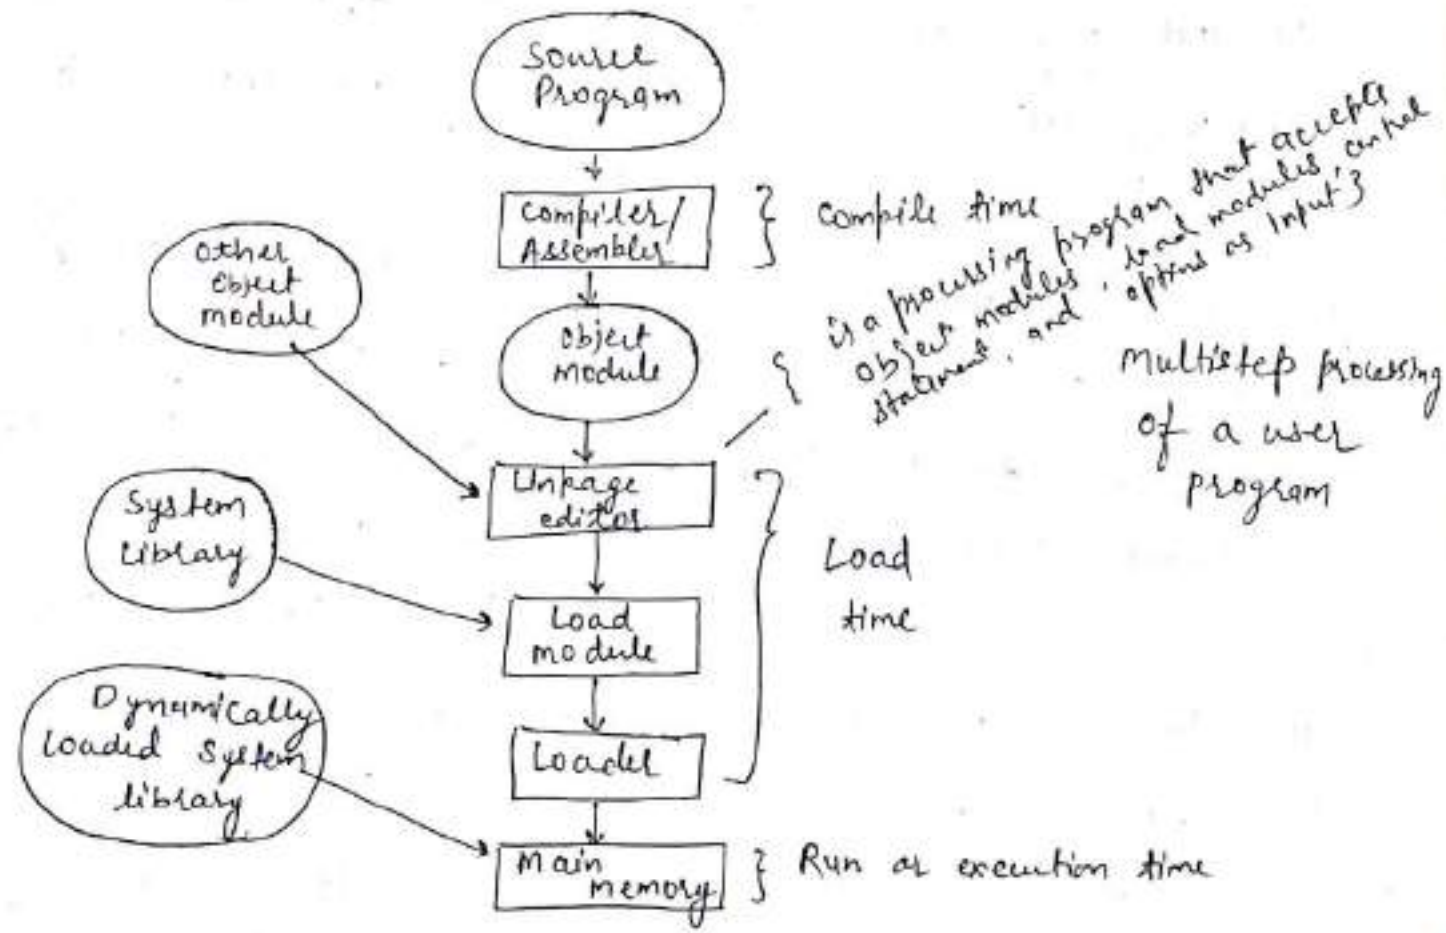 Source
Program
Compiler/
Assembler
} Compile time
Other
Object
module
Object
module
{ is a processing program that accepts
object modules, load modules, control
statement, and options as Input }
Multistep processing
of a user
program
Linkage
editor
System
Library
Load
time
Load
module
Dynamically
Loaded System
library
Loader
Main
memory
} Run or execution time